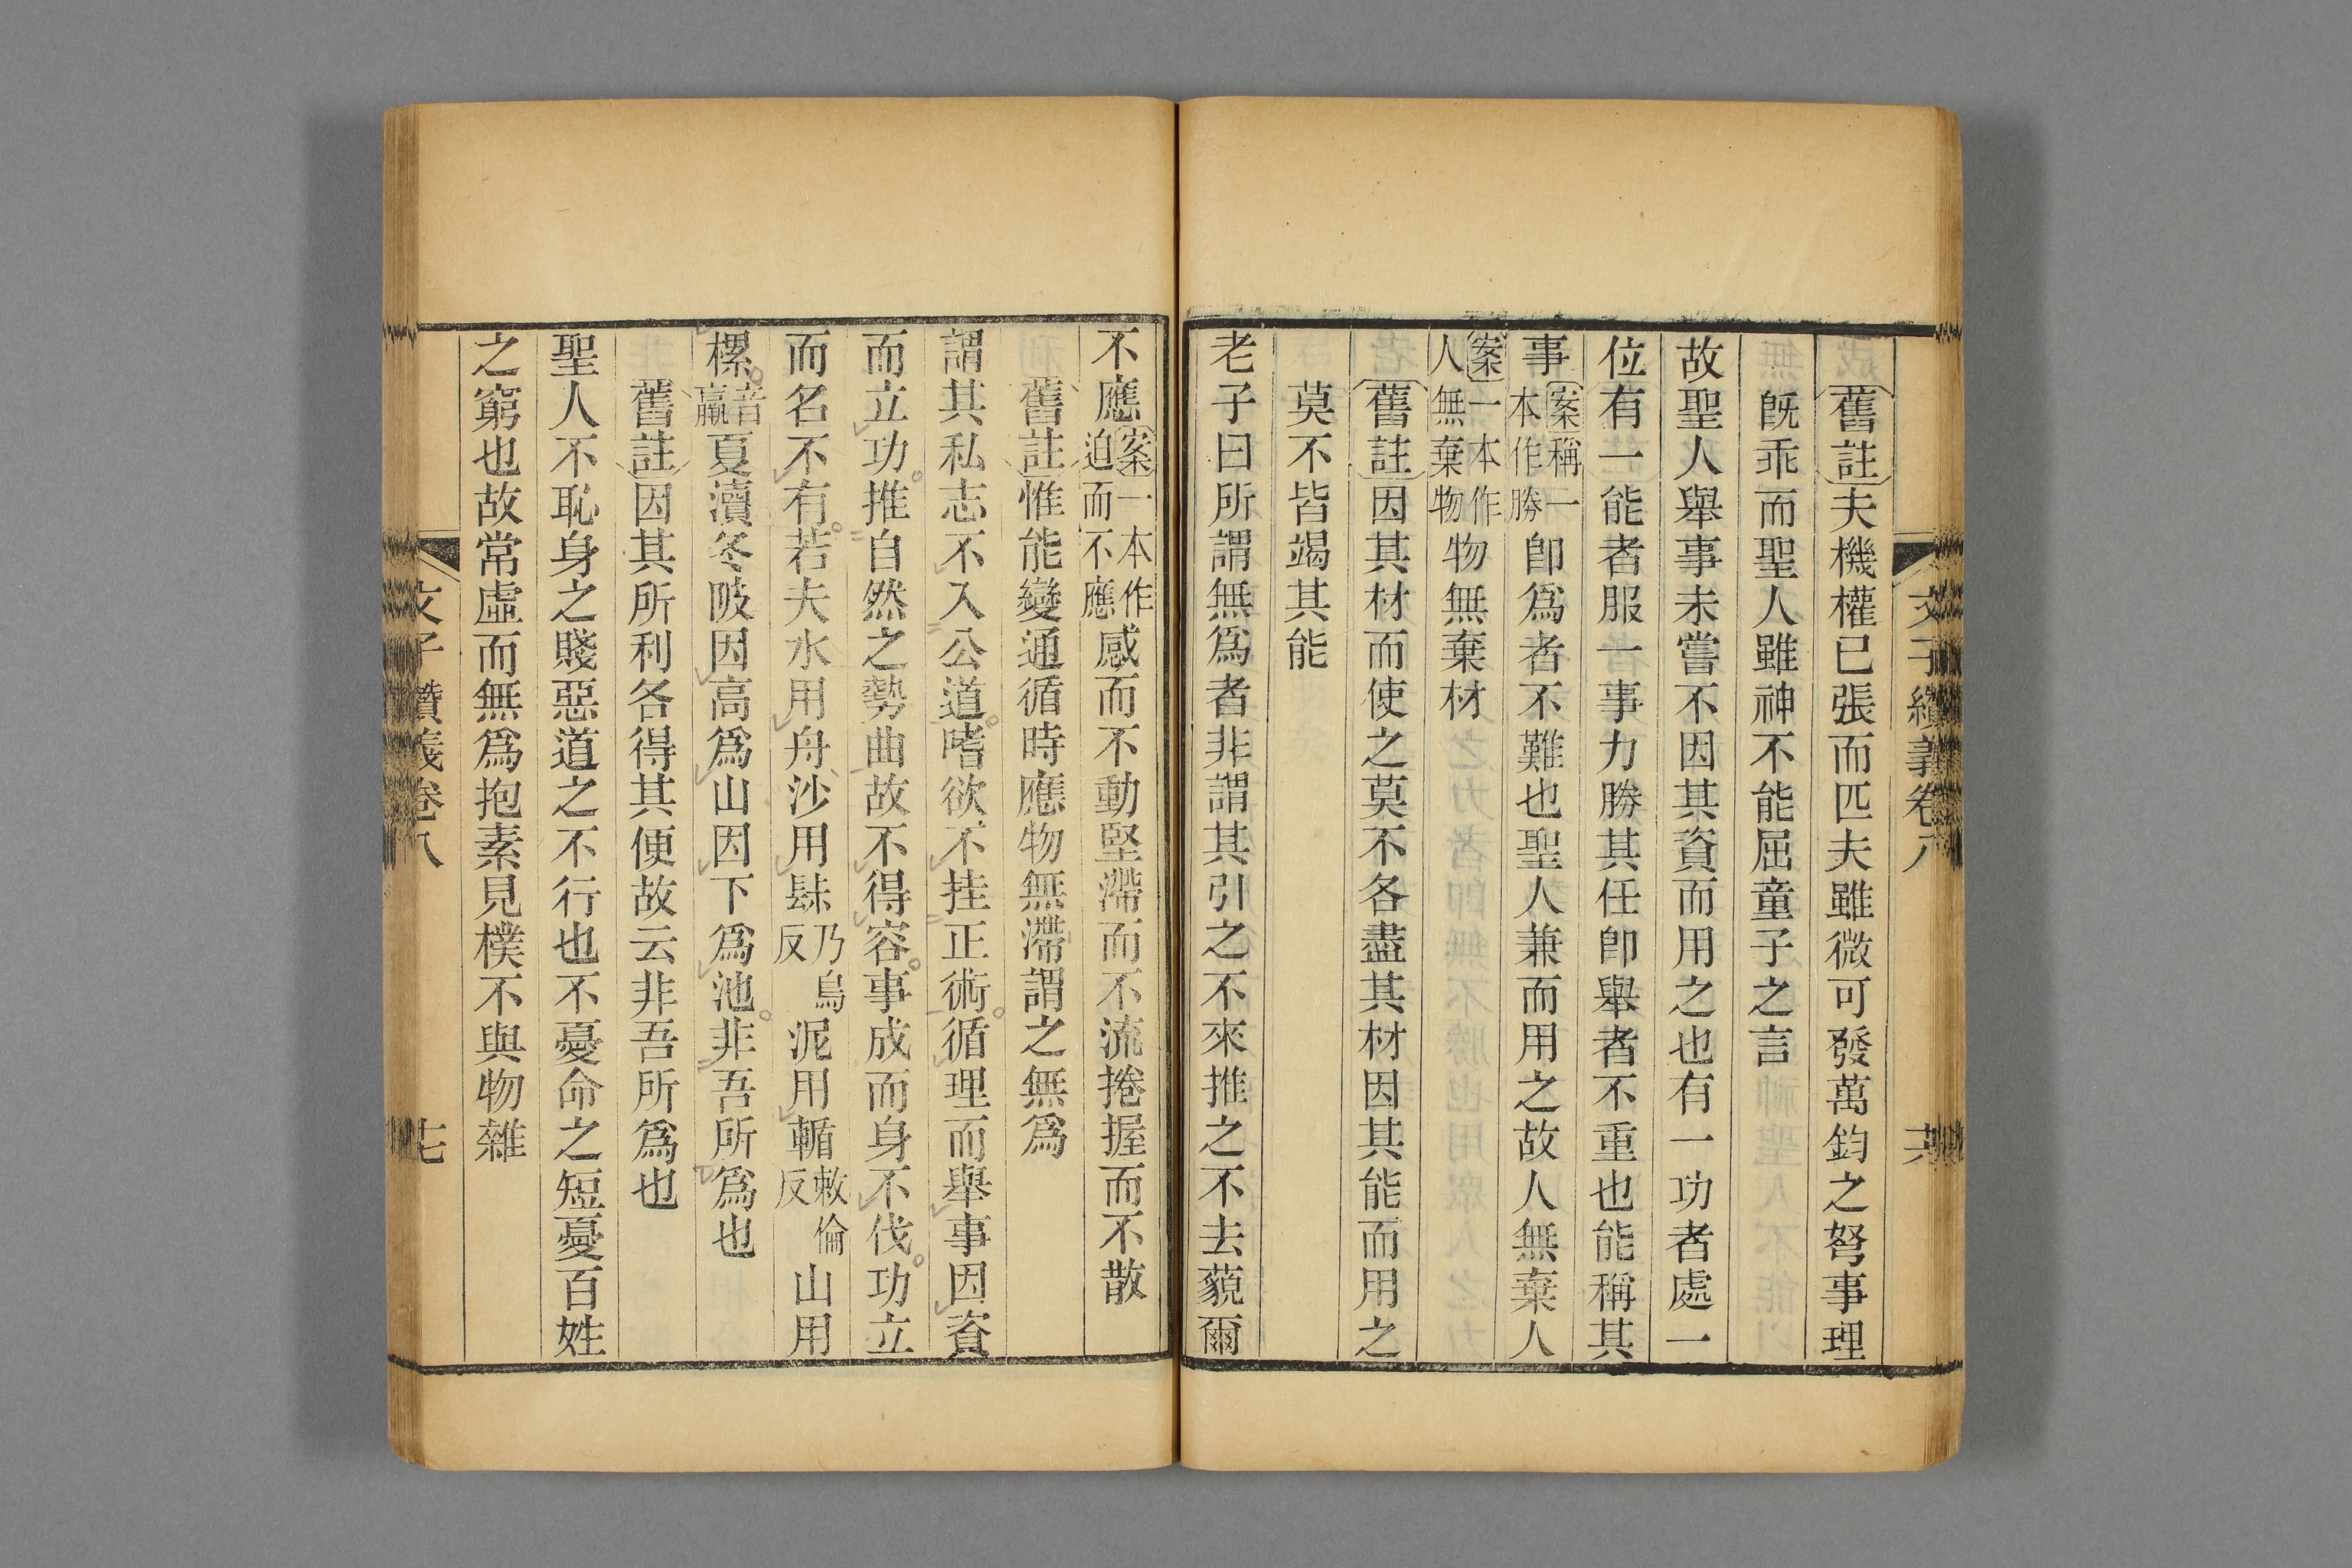 文子纘義卷八 六
舊註夫機權已張而匹夫雖微可發萬鈞之弩事理
既乖而聖人雖神不能屈童子之言
故聖人舉事未嘗不因其資而用之也有一功者處一
位有一能者服一事力勝其任卽舉者不重也能稱其
事案稱一本作勝卽爲者不難也聖人兼而用之故人無棄人
案一本作人無棄物物無棄材
舊註因其材而使之莫不各盡其材因其能而用之
莫不皆竭其能
老子曰所謂無爲者非謂其引之不來推之不去藐爾
不應案一本作迫而不應感而不動堅滯而不流捲握而不散
舊註惟能變通循時應物無滯謂之無爲
謂其私志不入公道嗜欲不挂正術循理而舉事因資
而立功推自然之勢曲故不得容事成而身不伐功立
而名不有若夫水用舟沙用𨾏乃鳥反泥用輴敕倫反山用
樏音羸夏瀆冬陂因高爲山因下爲池非吾所爲也
舊註因其所利各得其便故云非吾所爲也
聖人不恥身之賤惡道之不行也不憂命之短憂百姓
之窮也故常虛而無爲抱素見樸不與物雜
文子纘義卷八 七